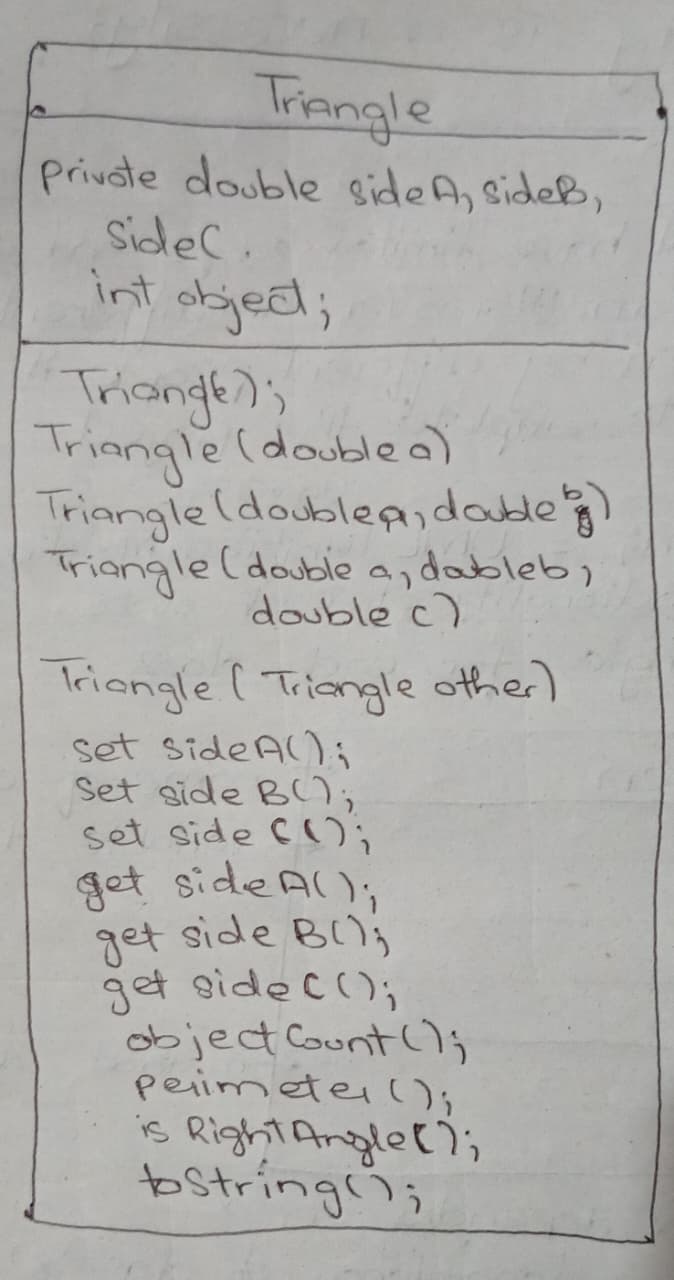 Triangle
private double sideA, sideB,
sideC.
int object;
Triangle();
Triangle(double a)
Triangle(double a, double b)
Triangle(double a, double b,
double c)
Triangle( Triangle other)
set sideA();
set side B();
set side C();
get sideA();
get side B();
get sideC();
objectCount();
perimeter();
is RightAngle();
toString();